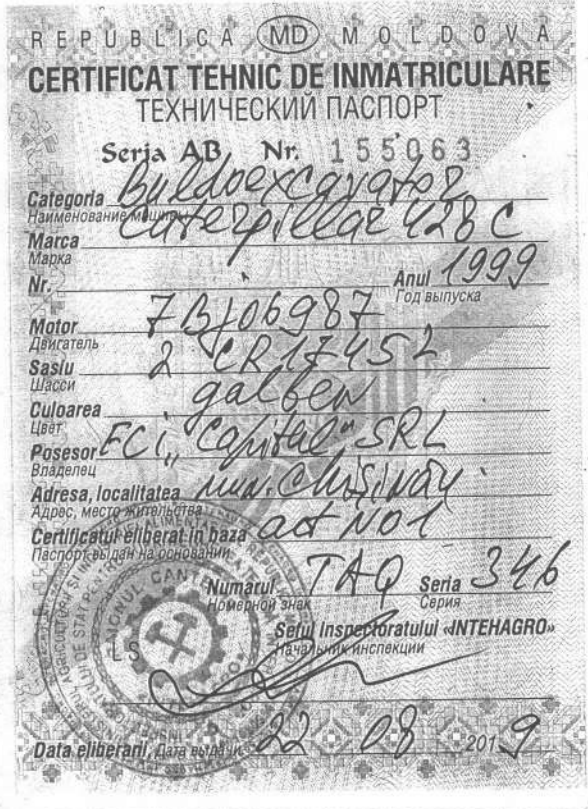 REPUBLICA MD MOLDOVA
CERTIFICAT TEHNIC DE INMATRICULARE
ТЕХНИЧЕСКИЙ ПАСПОРТ
Seria AB Nr. 155063
Categoria Buldoexcavator
Наименование машины
Caterpillar 428 C
Marca
Марка
Nr. Anul 1999
Год выпуска
Motor 7BJ06987
Двигатель
Sasiu 2 CR17452
Шасси
Culoarea galben
Цвет
Posesor FCI „Capital" SRL
Владелец
Adresa, localitatea mun. Chișinău
Адрес, место жительства
Certificatul eliberat in baza act NO1
Паспорт выдан на основании
Numarul TAQ Seria 346
Номерной знак Серия
Seful Inspectoratului «INTEHAGRO»
Начальник инспекции
LS
Data eliberarii, Дата выдачи 22 08 2019